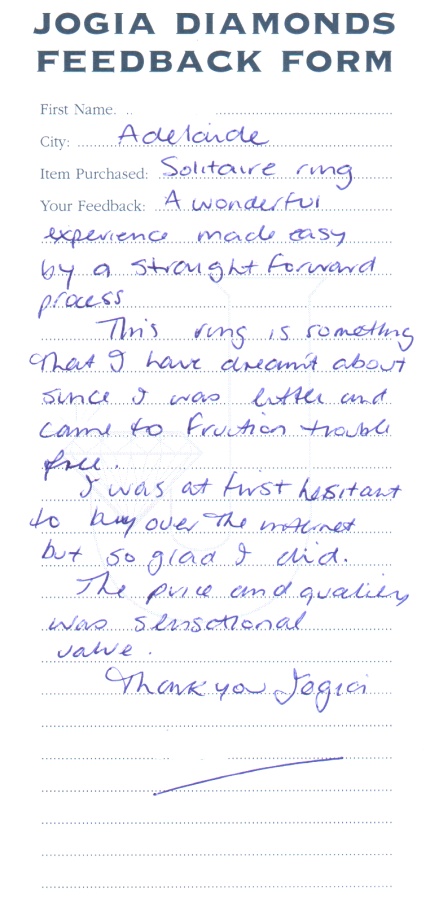 JOGIA DIAMONDS
FEEDBACK FORM
First Name.
City: Adelaide
Item Purchased: Solitaire ring
Your Feedback: A wonderful
experience made easy
by a straight forward
process
This ring is something
that I have dreamnt about
since I was little and
came to fruction trouble
free.
I was at first hesitant
to buy over the internet
but so glad I did.
The price and quality
was sensational
value.
Thank you Jogia